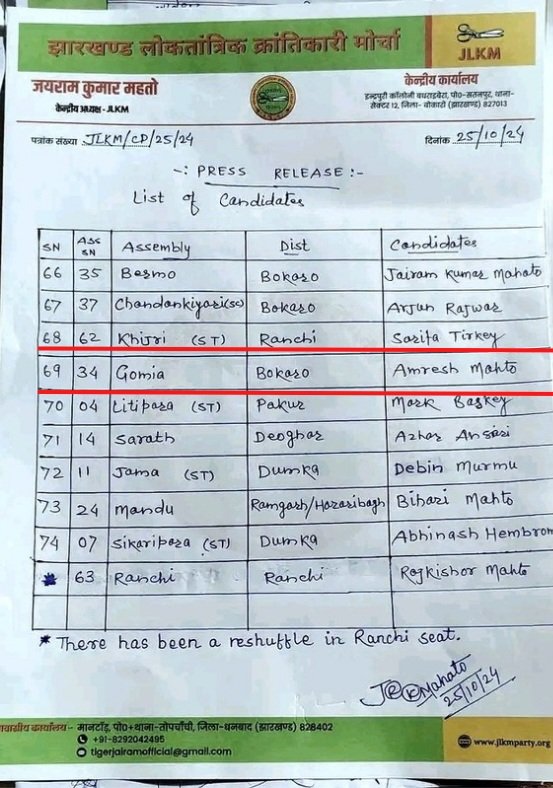 झारखण्ड लोकतांत्रिक क्रांतिकारी मोर्चा
JLKM
जयराम कुमार महतो
केन्द्रीय अध्यक्ष -JLKM
केन्द्रीय कार्यालय
इन्द्रपुरी कॉलोनी बघराइबेरा, पो०-सतनपुर, थाना-
सेक्टर 12, जिला- बोकारो (झारखण्ड) 827013
पत्रांक संख्या JLKM/CP/25/24 दिनांक 25/10/24
-: PRESS RELEASE :-
List of Candidates
SN ASS SN Assembly Dist Candidates
66 35 Bermo Bokaro Jairam Kumar Mahato
67 37 Chandankiyari(SC) Bokaro Arjun Rajwar
68 62 Khijri (ST) Ranchi Sarita Tirkey
69 34 Gomia Bokaro Amresh Mahto
70 04 Litipara (ST) Pakur Mark Baskey
71 14 Sarath Deoghar Azhar Ansari
72 11 Jama (ST) Dumka Debin Murmu
73 24 Mandu Ramgarh/Hazaribagh Bihari Mahto
74 07 Sikaripara (ST) Dumka Abhinash Hembrom
* 63 Ranchi Ranchi Rajkishor Mahto
* There has been a reshuffle in Ranchi seat.
Mahato
25/10/24
कार्यालय - मानटाँड़, पो०+थाना-तोपचाँची, जिला-धनबाद (झारखण्ड) 828402
+91-8292042495
tigerjairamofficial@gmail.com
www.jlkmparty.org